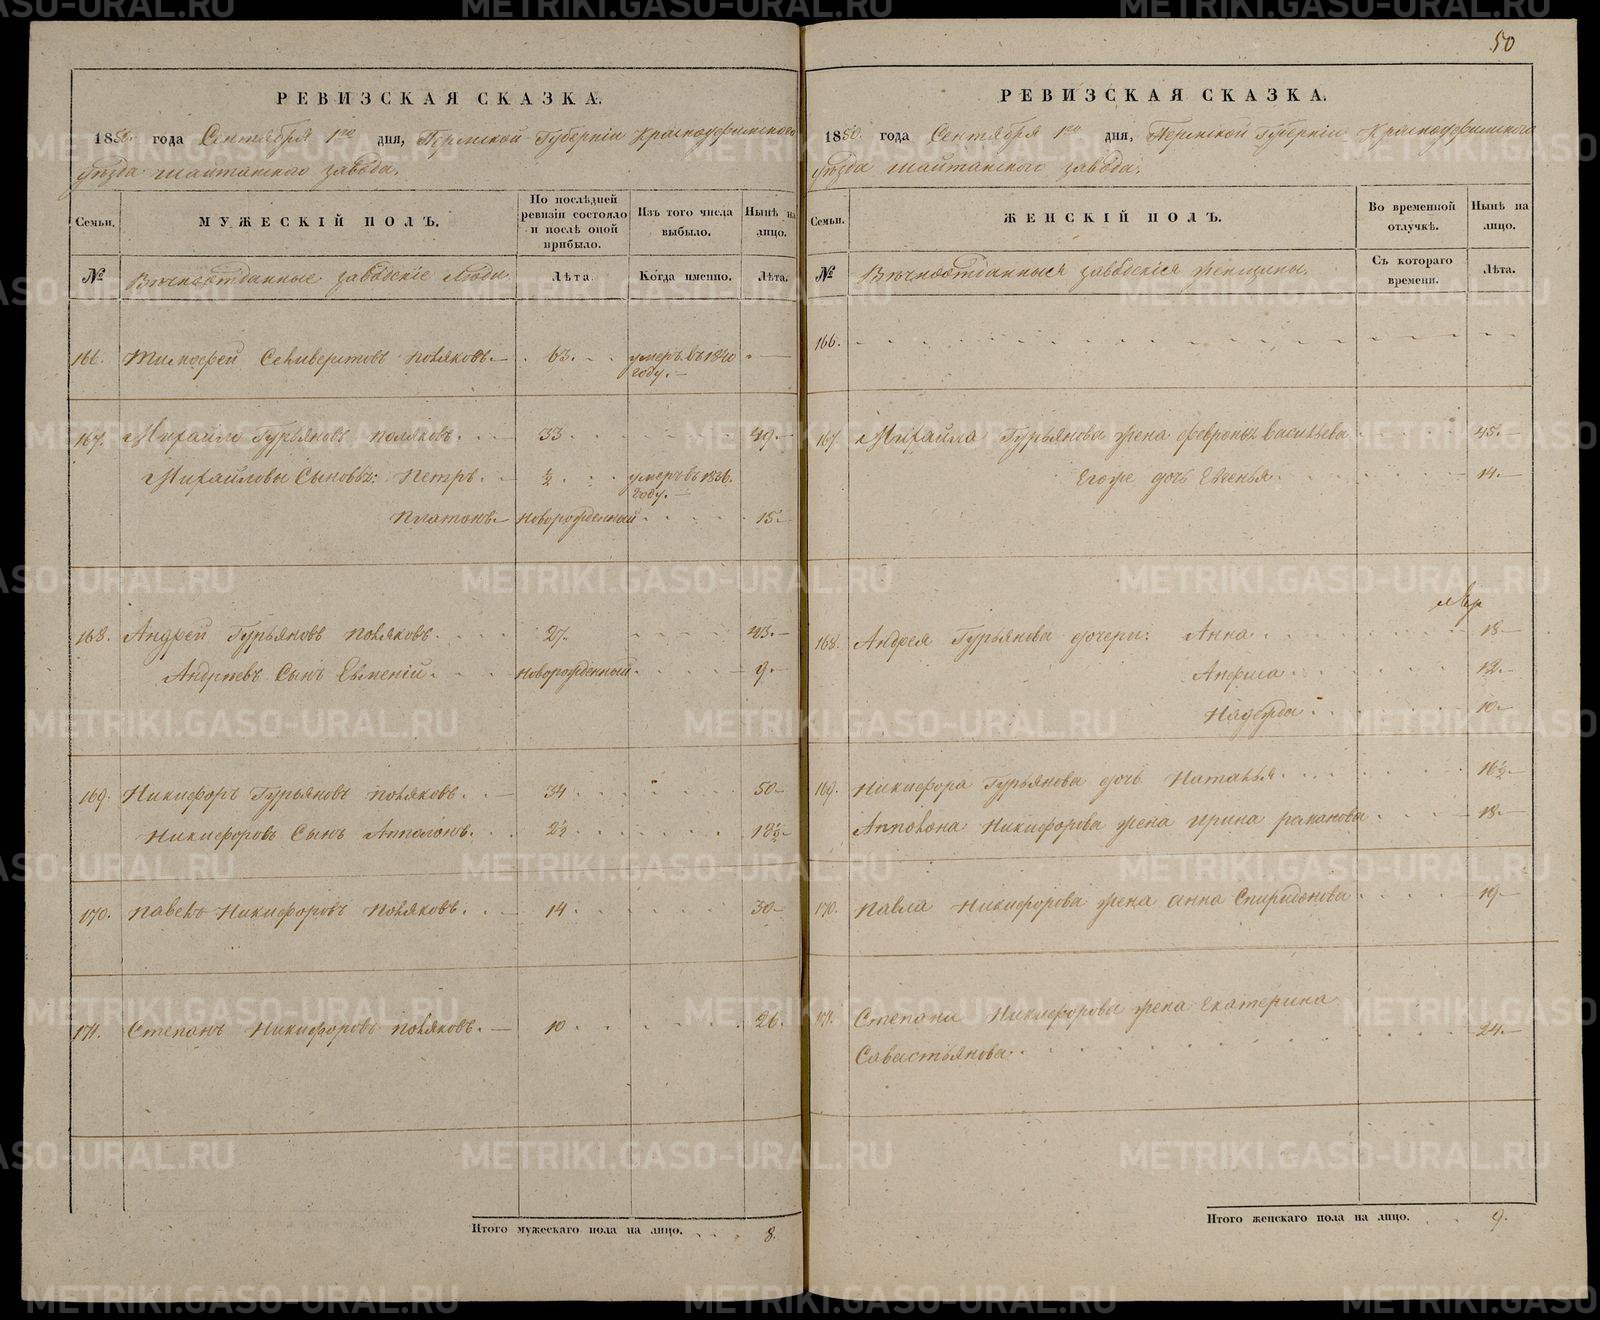 50
РЕВИЗСКАЯ СКАЗКА.
1850. года Сентября 1го дня, Пермской Губернiи Красноуфимского
уѣзда шайтанского завода.
Семьи.
МУЖЕСКIЙ ПОЛЪ.
По послѣдней
ревизiи состояло
и послѣ оной
прибыло.
Изъ того числа
выбыло.
Нынѣ на
лицо.
№
Вѣчноотданные заводскiе люди.
Лѣта.
Когда именно.
Лѣта.
166. Тимофей Селиверстовъ Поляковъ. 63. умеръ въ 1840
году.
167. Михайло Гурьяновъ поляковъ. 33. 49.
Михайловы Сыновья: Петръ. ½. умеръ въ 1836.
году.
Платонъ. Новорожденный 15.
168. Андрей Гурьяновъ поляковъ. 27. 43.
Андреевъ Сынъ Евгенiй. Новорожденный. 9.
169. Никифоръ Гурьяновъ поляковъ. 34 50
Никифоровъ Сынъ Апполонъ. 2½ 18½
170. Павелъ Никифоровъ Поляковъ. 14 30
171. Степанъ Никифоровъ поляковъ. 10 26.
Итого мужескаго пола на лицо. 8.
РЕВИЗСКАЯ СКАЗКА.
1850. года Сентября 1го дня, Пермской Губернiи Красноуфимского
уѣзда шайтанского завода.
Семьи.
ЖЕНСКIЙ ПОЛЪ.
Во временной
отлучкѣ.
Нынѣ на
лицо.
№
Вѣчноотданныя заводскiя женщины.
Съ котораго
времени.
Лѣта.
166.
167. Михайла Гурьянова жена Февронья васильева 45.
Егоже дочь Евгенья. 14.
168. Андрея Гурьянова дочери: Анна 18
Анфиса 12.
Надежда 10.
169. Никифора Гурьянова дочь Наталья. 16½
Апполона Никифорова жена Ирина 18.
170. Павла Никифорова жена Анна Спиридонова 19
171. Степана Никифорова жена Екатерина
Савастьянова. 24.
Итого женскаго пола на лицо. 9.
METRIKI.GASO-URAL.RU